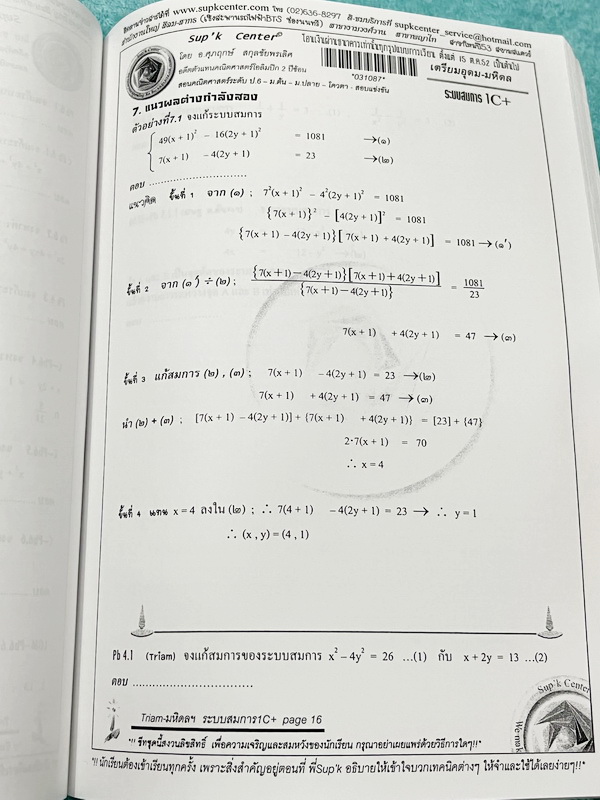 ติดตามข่าวสารได้ที่ www.supkcenter.com โทร (02)636-8297 สั-ชมบริการที่ supkcenter_service@hotmail.com
สำนักงานใหญ่ (เชิงสะพานรถไฟฟ้าBTS สาขางามวงศ์วาน
Sup'k Center
โอนเงินผ่านธนาคารเท่านั้นทุกรูปแบบการเรียน ตั้งแต่ 15 ต.ค.52 เป็นต้นไป
โดย อ.ศุภฤกษ์ สกุลชัยพรเลิศ
อดีตตัวแทนคณิตศาสตร์โอลิมปิก 2 ปีซ้อน
สอนคณิตศาสตร์ระดับ ป.6 – ม.ต้น – ม.ปลาย – โควตา - สอบแข่งขัน
*031087*
เตรียมอุดม-มหิดล
ระบบสมการ 1C+
7. แนวผลต่างกำลังสอง
ตัวอย่างที่7.1 จงแก้ระบบสมการ
49(x + 1)² – 16(2y + 1)² = 1081 →(๑)
7(x + 1) – 4(2y + 1) = 23 →(๒)
ตอบ ..........................
แนวคิด ขั้นที่ 1 จาก (๑) ; 7²(x + 1)² – 4²(2y + 1)² = 1081
{7(x + 1)}² – [4(2y + 1)]² = 1081
{7(x + 1) – 4(2y + 1)}[ 7(x + 1) + 4(2y + 1)] = 1081 → (๑′)
ขั้นที่ 2 จาก (๑′) ÷ (๒) ; {7(x+1)−4(2y+1)}[7(x+1)+4(2y+1)] / {7(x+1)−4(2y+1)} = 1081/23
7(x + 1) + 4(2y + 1) = 47 → (๓)
ขั้นที่ 3 แก้สมการ (๒) , (๓) ; 7(x + 1) – 4(2y + 1) = 23 →(๒)
7(x + 1) + 4(2y + 1) = 47 → (๓)
นำ (๒) + (๓) ; [7(x + 1) – 4(2y + 1)] + {7(x + 1) + 4(2y + 1)} = [23] + {47}
2·7(x + 1) = 70
∴ x = 4
ขั้นที่ 4 แทน x = 4 ลงใน (๒) ; ∴ 7(4 + 1) – 4(2y + 1) = 23 → ∴ y = 1
∴ (x , y) = (4 , 1)
Pb 4.1 (Triam) จงแก้สมการของระบบสมการ x² – 4y² = 26 ...(1) กับ x + 2y = 13 ...(2)
ตอบ ..............................
Triam-มหิดลฯ ระบบสมการ1C+ page 16
Sup'k Center
"!! ชีทชุดนี้สงวนลิขสิทธิ์ เพื่อความเจริญและสมหวังของนักเรียน กรุณาอย่าเผยแพร่ด้วยวิธีการใดๆ!!"
"!! นักเรียนต้องเข้าเรียนทุกครั้ง เพราะสิ่งสำคัญอยู่ตอนที่ พี่Sup'k อธิบายให้เข้าใจบวกเทคนิคต่างๆ ให้จำและใช้ได้เลยง่ายๆ!!"